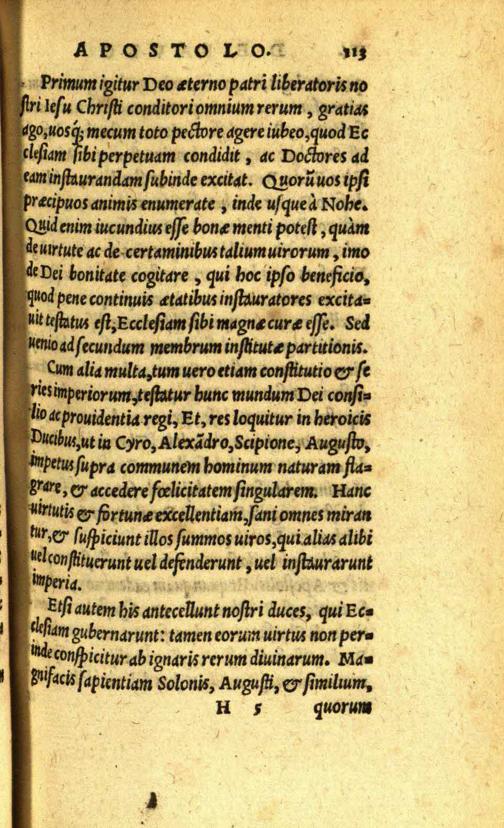 APOSTOLO. 113
Primum igitur Deo æterno patri liberatoris no
stri Iesu Christi conditori omnium rerum, gratias
ago, uosq; mecum toto pectore agere iubeo, quod Ec
clesiam sibi perpetuam condidit, ac Doctores ad
eam instaurandam subinde excitat. Quorũ uos ipsi
præcipuos animis enumerate, inde usque à Nohe.
Quid enim iucundius esse bonæ menti potest, quàm
de uirtute ac de certaminibus talium uirorum, imo
de Dei bonitate cogitare, qui hoc ipso beneficio,
quod pene continuis ætatibus instauratores excita=
uit testatus est, Ecclesiam sibi magnæ curæ esse. Sed
uenio ad secundum membrum institutæ partitionis.
Cum alia multa, tum uero etiam constitutio & se
ries imperiorum, testatur hunc mundum Dei consi=
lio ac prouidentia regi, Et, res loquitur in heroicis
Ducibus, ut in Cyro, Alexãdro, Scipione, Augusto,
impetus supra communem hominum naturam fla=
grare, & accedere fœlicitatem singularem. Hanc
uirtutis & fortunæ excellentiam, sani omnes miran
tur, & suspiciunt illos summos uiros, qui alias alibi
uel constituerunt uel defenderunt, uel instaurarunt
imperia.
Etsi autem his antecellunt nostri duces, qui Ec=
clesiam gubernarunt: tamen eorum uirtus non per=
inde conspicitur ab ignaris rerum diuinarum. Ma=
gnifacis sapientiam Solonis, Augusti, & similium,
H 5 quorum